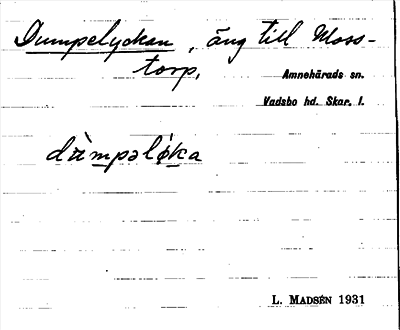 Dumpelyckan, äng till Moss-
torp,
Amnehärads sn.
Vadsbo hd. Skar. l.
dùmpəlẏka
L. MADSÉN 1931